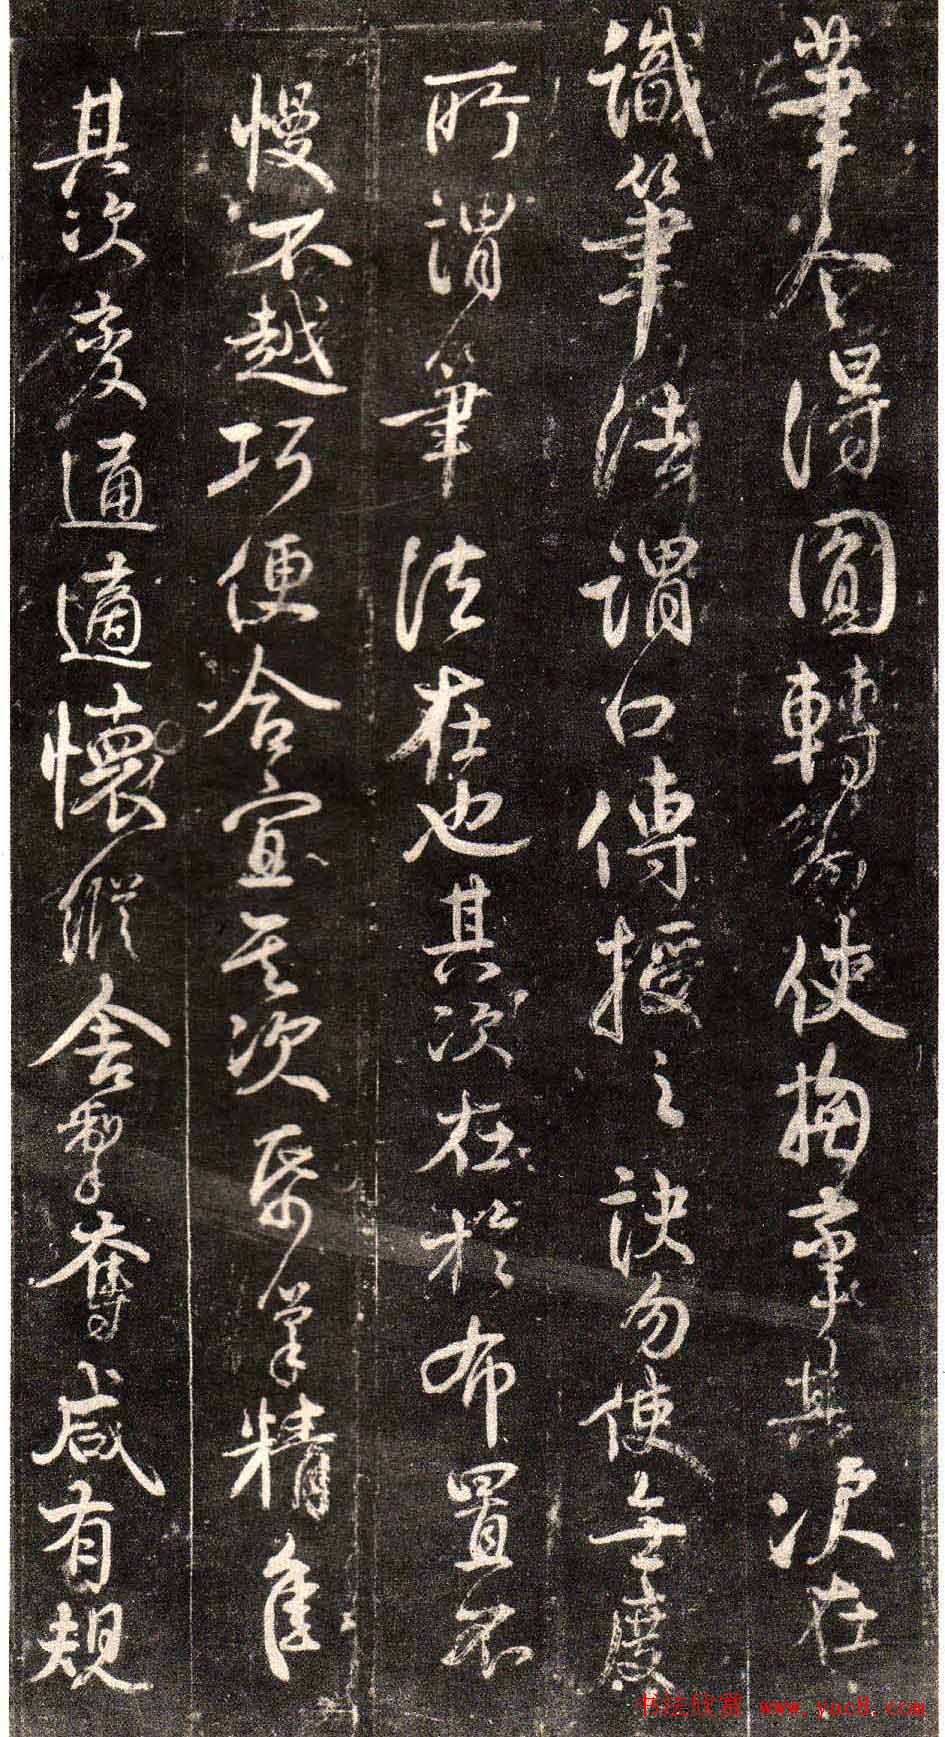 筆令得圓轉使拘攣其次在
識筆法謂口傳授之訣勿使無度
所謂筆法在也其次在於布置不
慢不越巧便合宜其次紙筆精佳
其次變通適懷縱舍掣奪咸有規
书法欣赏 www.yac8.com